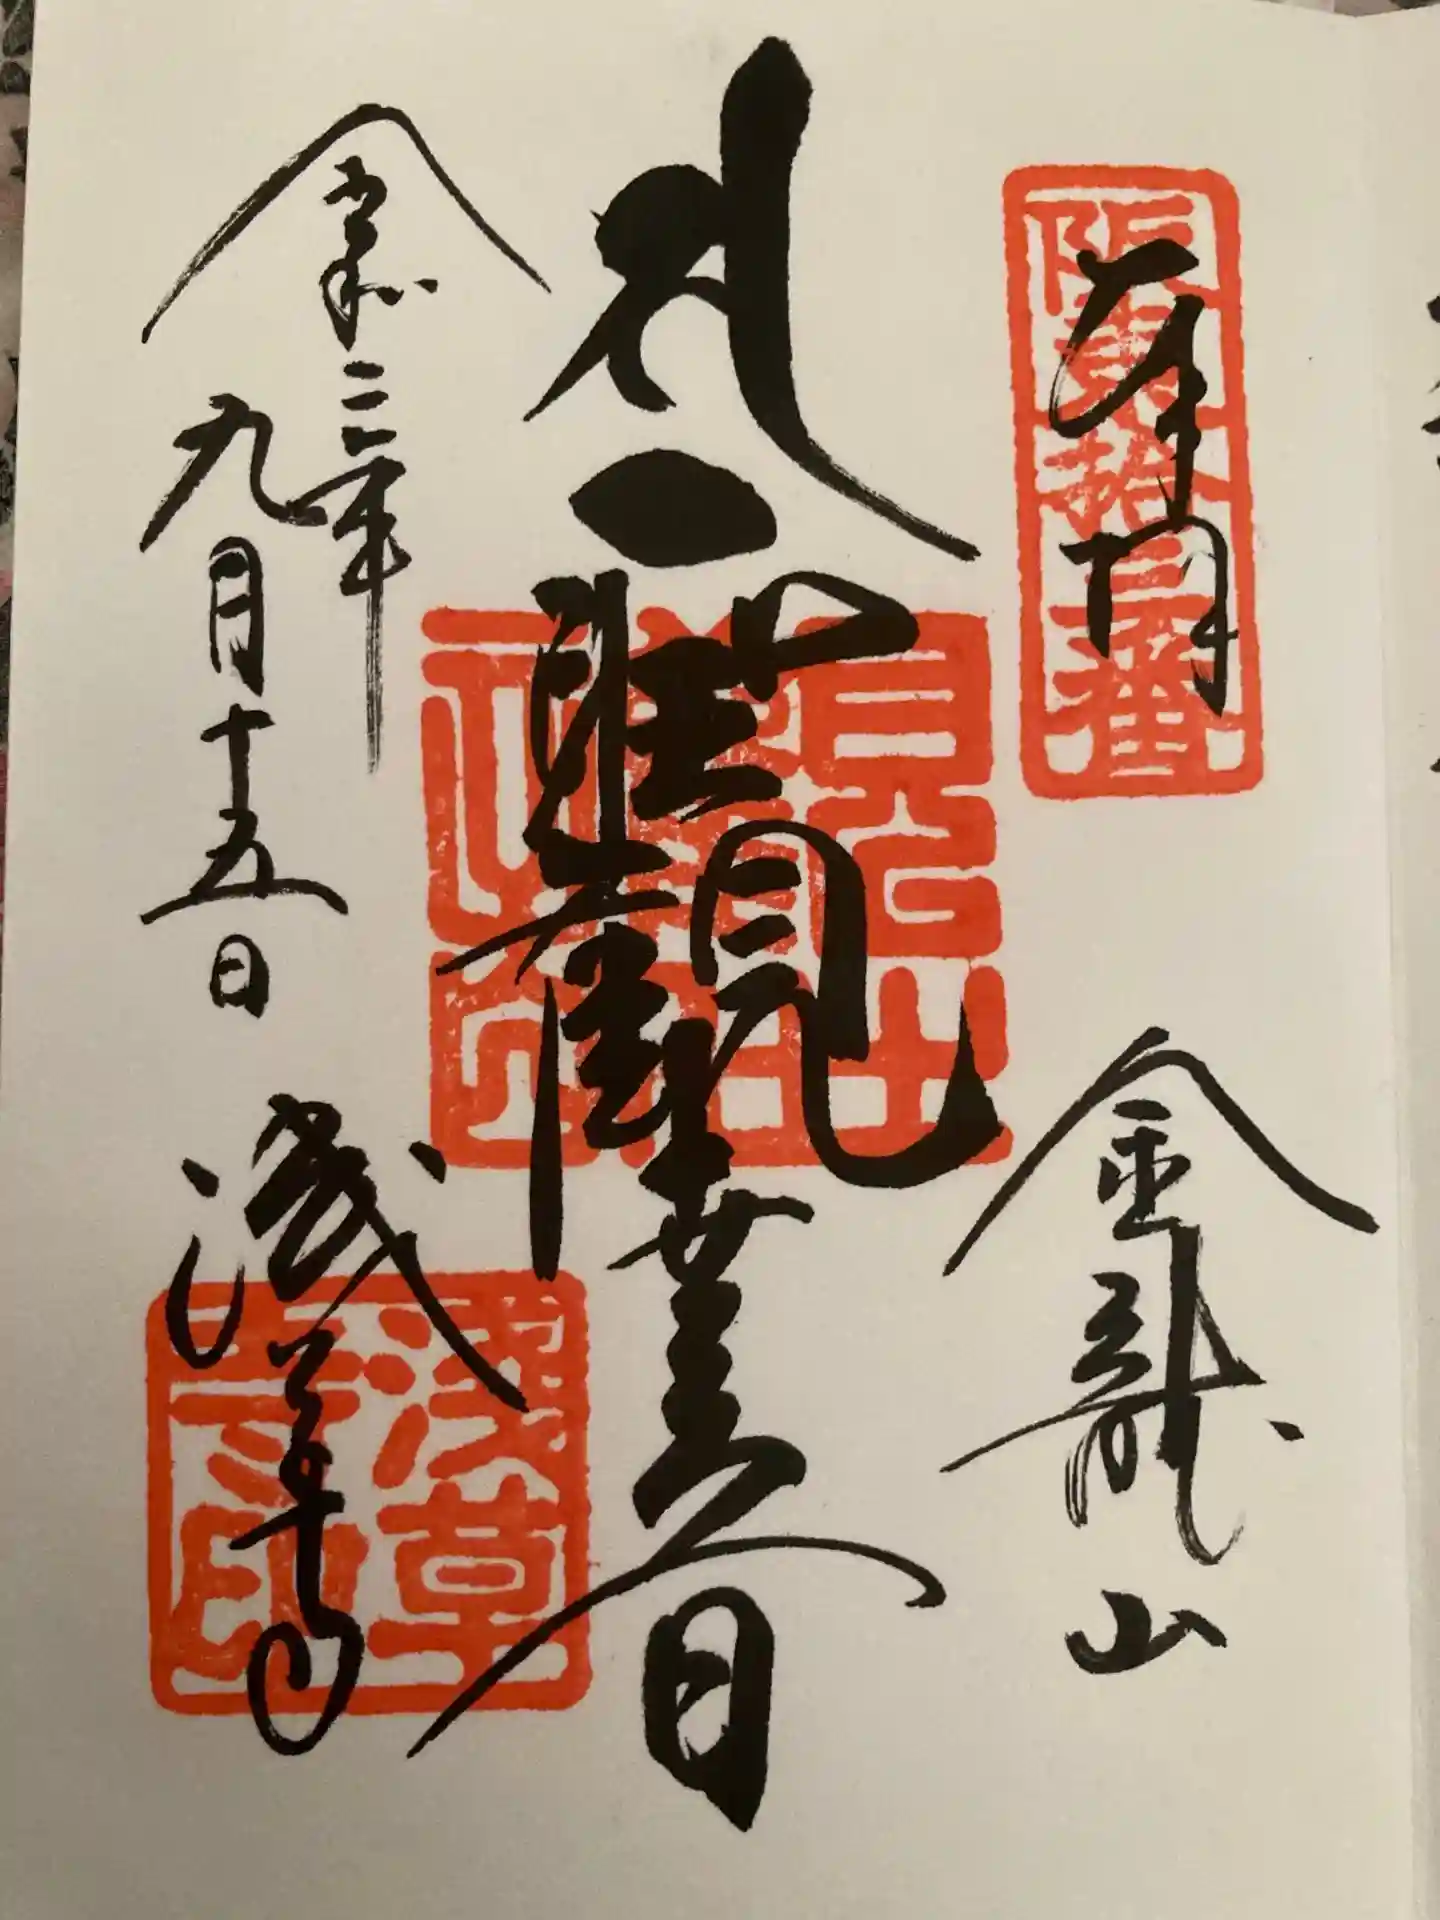 奉拝
阪東拾三番
金龍山
聖観世音
令和二年
九月十五日
浅草寺
浅草寺印